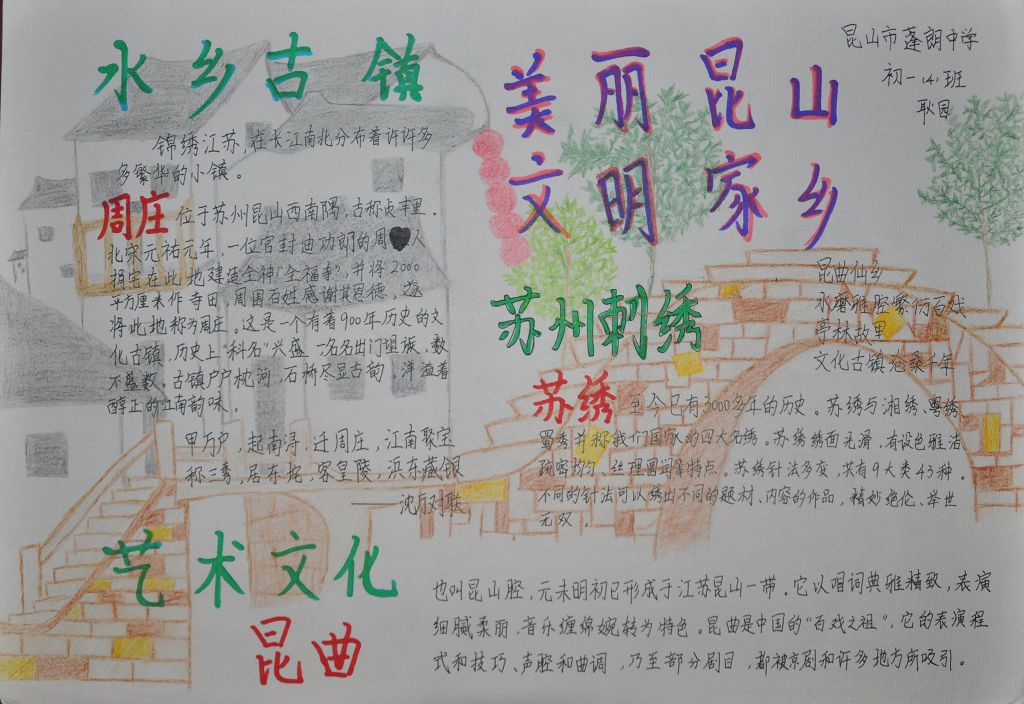 水乡古镇
锦绣江苏,在长江南北分布着许许多
多繁华的小镇。
周庄 位于苏州昆山西南隅,古称贞丰里。
北宋元祐元年,一位官封迪功郎的周 人
捐宅在此地建造全神"全福寺",并将2000
平方厘米作寺田,周围百姓感谢其恩德,
将此地称为周庄。这是一个有着900年历史的文
化古镇,历史上"科名"兴盛 一名名出门 ,数
不盛数。古镇户户枕河,石桥尽显古韵,洋溢着
醇正的江南韵味。
甲万户,起南浔,迁周庄,江南聚宝
称三秀,居东 ,客皇陵,浜东藏银
——沈 对联
美丽昆山
文明家乡
昆山市蓬朗中学
初一(4)班
耿园
昆曲仙乡
水磨雅腔繁衍百戏
亭林故里
文化古镇沧桑千年
苏州刺绣
苏绣 至今已有3000多年的历史。苏绣与湘绣、粤绣、
蜀秀并称我们国家的四大名绣。苏绣绣面光滑,有设色雅洁、
疏密均匀、丝理圆润等特点。苏绣针法多变,共有9大类43种。
不同的针法可以绣出不同的题材、内容的作品,精妙绝伦、举世
无双。
艺术文化
昆曲
也叫昆山腔,元末明初已形成于江苏昆山一带。它以唱词典雅精致,表演
细腻柔丽,音乐缠绵婉转为特色。昆曲是中国的"百戏之祖",它的表演程
式和技巧、声腔和曲调,乃至部分剧目,都被京剧和许多地方所吸引。